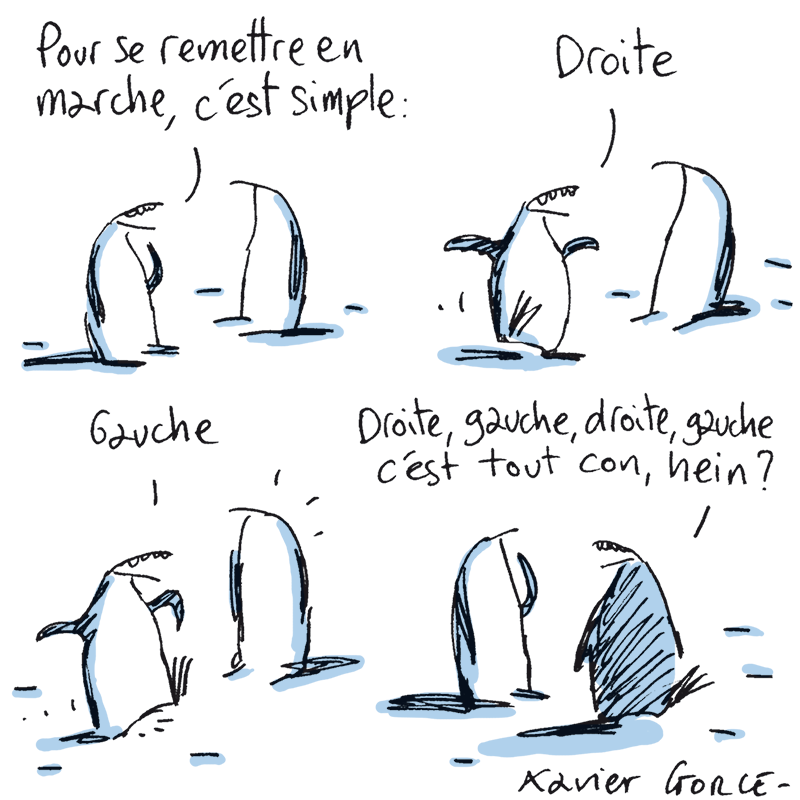 Pour se remettre en
marche, c'est simple:
Droite
Gauche
Droite, gauche, droite, gauche
c'est tout con, hein?
Xavier GORCE-